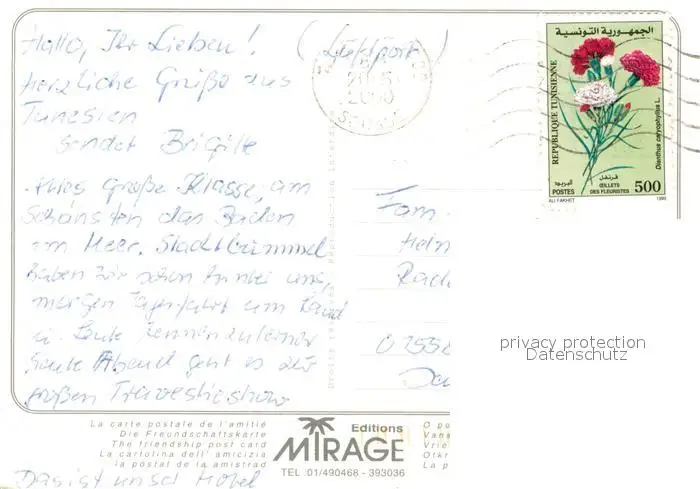 Hallo, Ihr Lieben! (Luftpost)
Herzliche Grüße aus
Tunesien
sendet Brigitte
Alles große Klasse, am
schönsten das Baden
im Meer. Stadtbummel
haben wir schon hinter uns,
morgen Tagesfahrt um Land
u. Leute kennenzulernen
heute Abend geht es zur
großen Travestieshow
Das ist unser Hotel
Fam.
Hein
Rad
الجمهورية التونسية
REPUBLIQUE TUNISIENNE
Dianthus caryophyllus L.
البريد
POSTES
قرنفل
ŒILLETS
DES FLEURISTES
500
ALI FAKHET
privacy protection
Datenschutz
La carte postale de l'amitié
Die Freundschaftskarte
The friendship post card
La cartolina dell' amicizia
la postal de la amistrad
Editions
MIRAGE
TEL :01/490468 - 393036
O po
Vans
Vrie
Otkr
La p